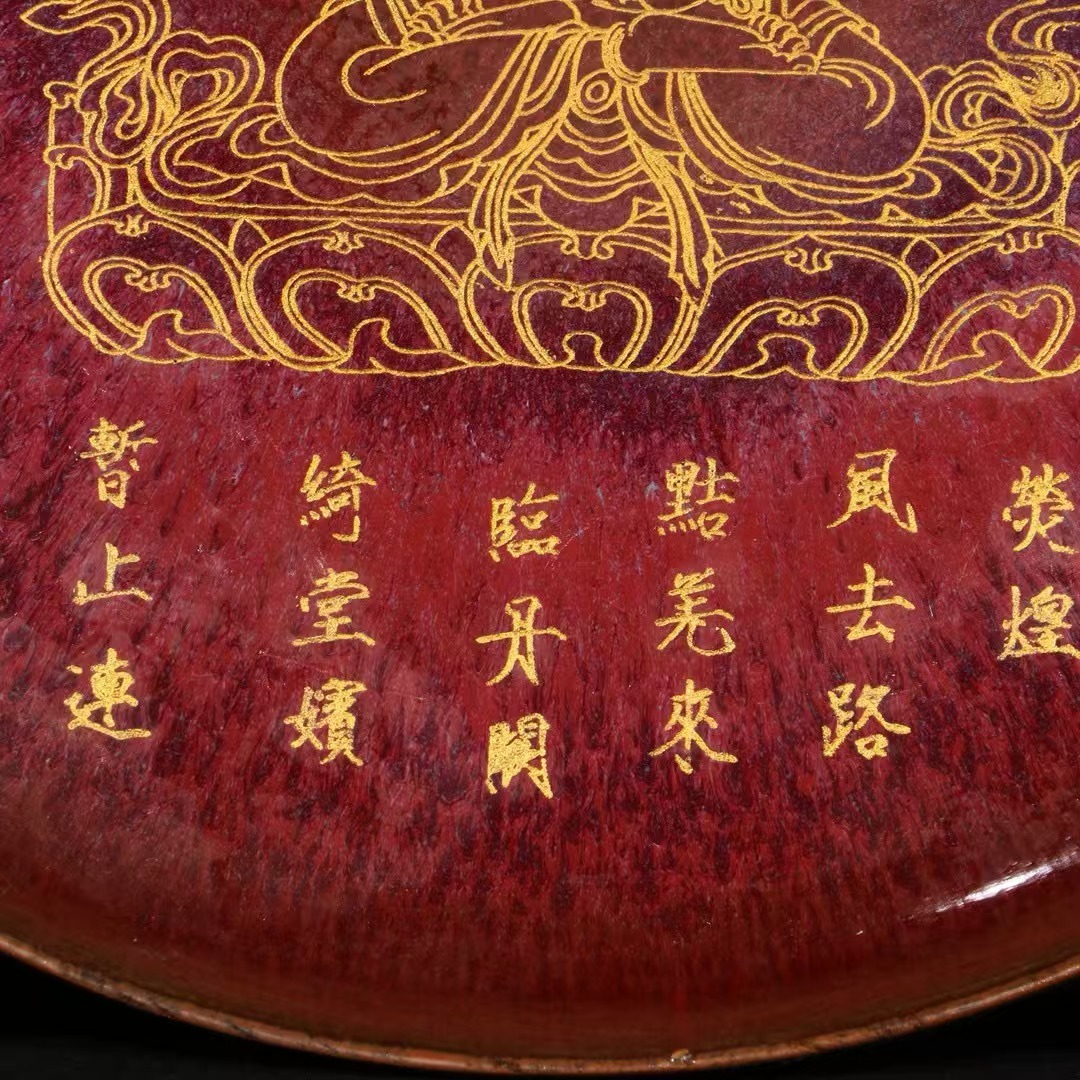 熒煌
風去路
點羌來
臨丹闕
綺堂嬪
暫止連